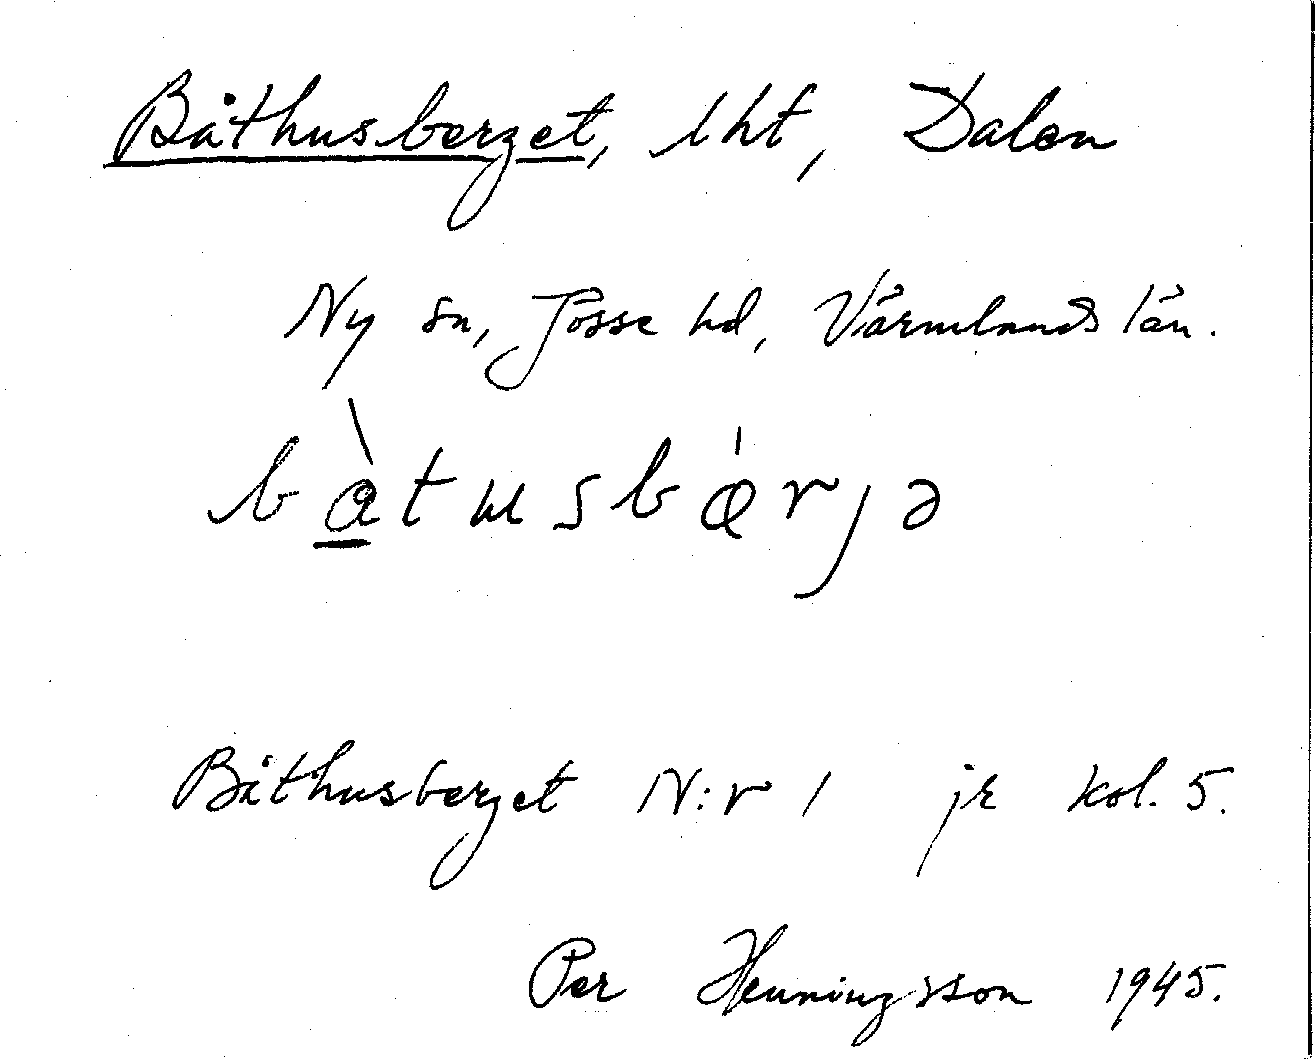 Båthusberget, lht, Dalen
Ny sn, Jösse hd, Värmlands län.
bàtusbæ̀rjə
Båthusberget N:r 1 jr kol. 5.
Per Henningsson 1945.